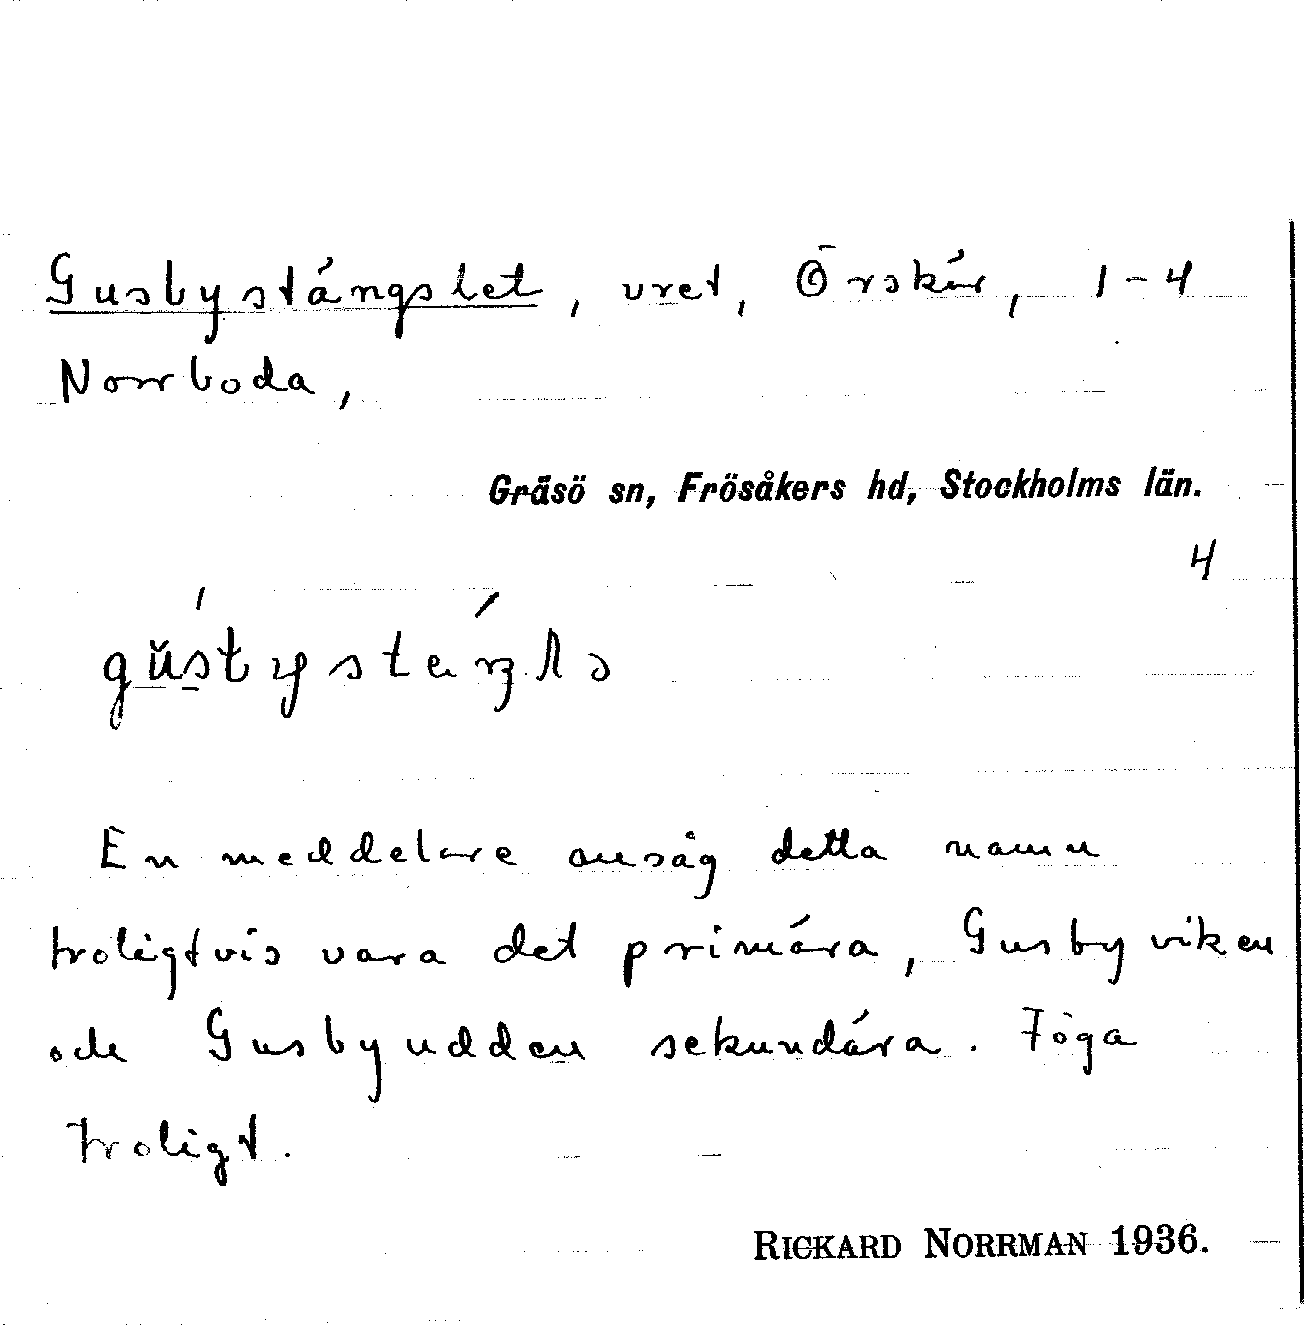 Gusbystängslet, vret, Örskär, 1-4
Norrboda,
Gräsö sn, Frösåkers hd, Stockholms län.
4
En meddelare ansåg detta namn
troligtvis vara det primära, Gusbyviken
och Gusbyudden sekundära. Föga
troligt.
RICKARD NORRMAN 1936.